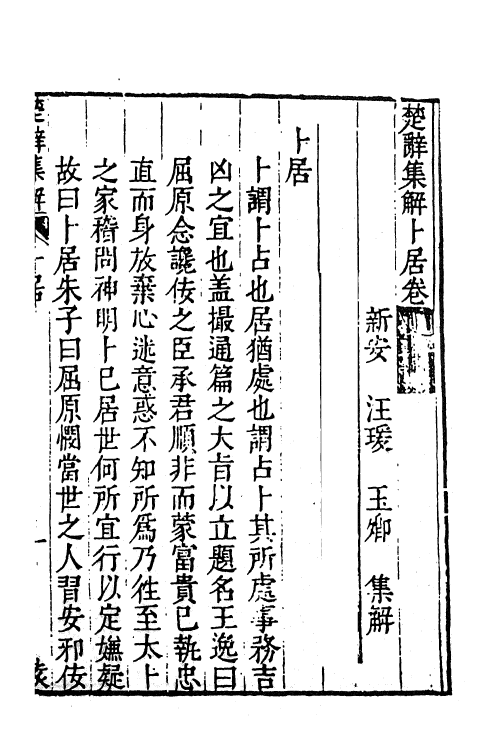 楚辭集解卜居卷
新安 汪瑗 玉卿 集解
卜居
卜謂卜占也居猶處也謂占卜其所處事務吉
凶之宜也盖撮通篇之大旨以立題名王逸曰
屈原念讒佞之臣承君順非而蒙富貴已執忠
直而身放棄心迷意惑不知所爲乃徃至太卜
之家稽問神明卜已居世何所宜行以定嫌疑
故曰卜居朱子曰屈原憫當世之人習安邪佞
楚辭集解 卜居 一